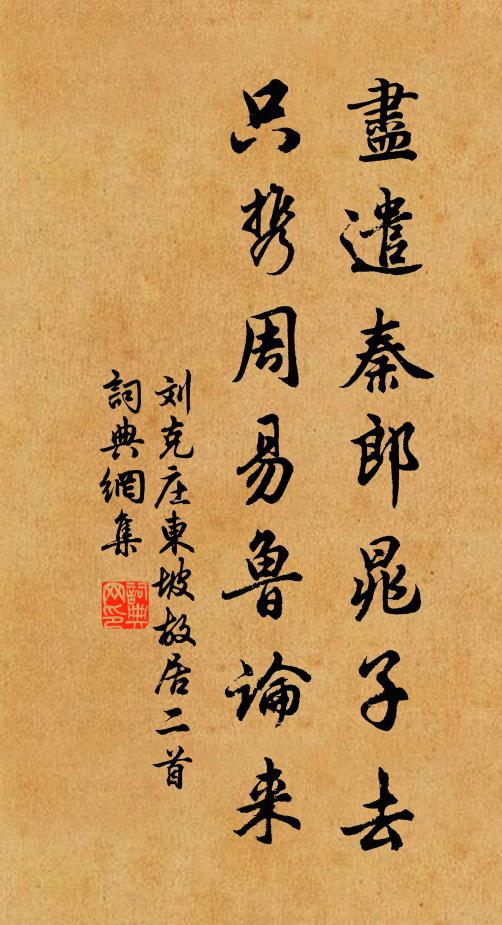 盡遣秦郎晁子去
只携周易魯論来
刘克庄東坡故居二首
詞典網集
詞典
网印